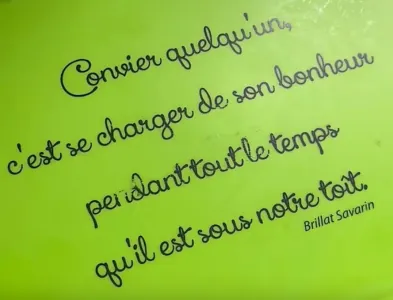 Convier quelqu'un,
c'est se charger de son bonheur
pendant tout le temps
qu'il est sous notre toit.
Brillat Savarin